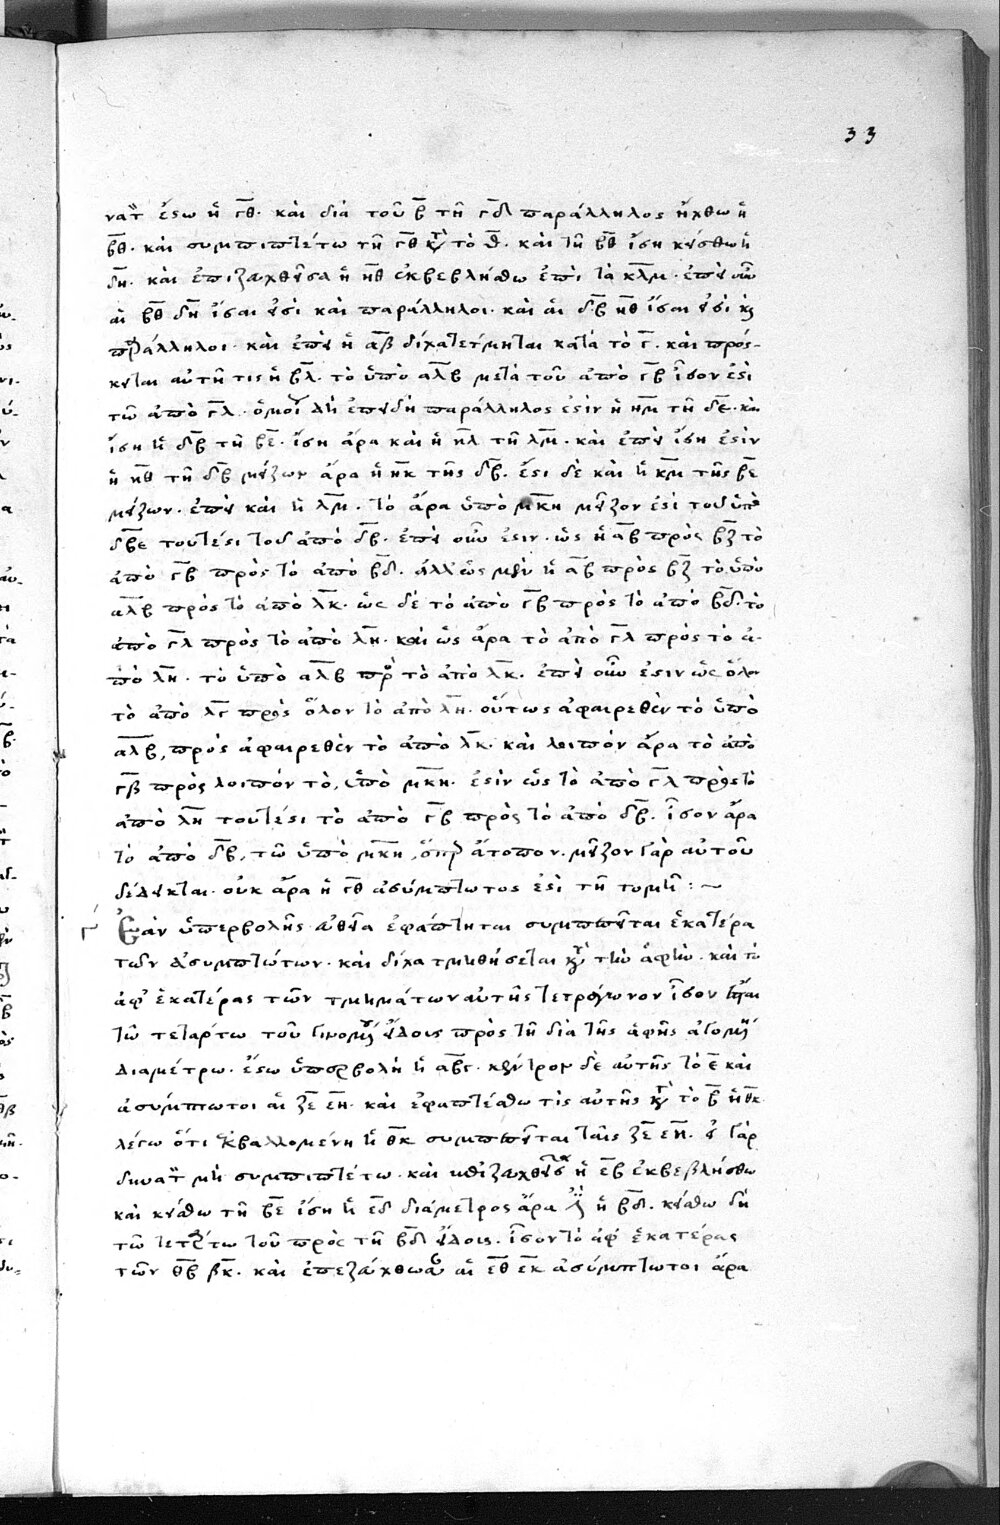 33
νατ̈ ἔστω ἡ γ̅θ̅· καὶ διὰ τοῦ β̅ τῆ γ̅δ̅ παράλληλος ἤχθω ἡ
β̅θ̅· καὶ συμπιπτέτω τῆ γ̅θ̅ κατὰ τὸ θ̅· καὶ τῆ β̅θ̅ ἴση κείσθω ἡ
δ̅η̅· καὶ ἐπιζευχθεῖσα ἡ η̅θ̅ ἐκβεβλήσθω ἐπὶ τὰ κ̅λ̅μ̅· ἐπεὶ οὖν
αἱ β̅θ̅ δ̅η̅ ἴσαι εἰσὶ καὶ παράλληλοι· καὶ αἱ δ̅β̅ η̅θ̅ ἴσαι εἰσὶ καὶ
παράλληλοι· καὶ ἐπεὶ ἡ α̅β̅ δίχα τέτμηται κατὰ τὸ γ̅· καὶ πρόσ-
κειται αὐτῆ τις ἡ β̅λ̅· τὸ ὑπὸ α̅λ̅β̅ μετὰ τοῦ ἀπὸ γ̅β̅ ἴσον ἐστὶ
τῶ ἀπὸ γ̅λ̅· ὁμοί δὴ ἐπειδὴ παράλληλος ἐστὶν ἡ η̅μ̅ τῆ δ̅ε̅· καὶ
ἴση ἡ δ̅β̅ τῆ β̅ε̅· ἴση ἄρα καὶ ἡ η̅λ̅ τῆ λ̅μ̅· καὶ ἐπεὶ ἴση ἐστὶν
ἡ η̅θ̅ τῆ δ̅β̅ μείζων ἄρα ἡ η̅κ̅ τῆς δ̅β̅· ἔστι δὲ καὶ ἡ κ̅μ̅ τῆς β̅ε̅
μείζων· ἐπεὶ καὶ ἡ λ̅μ̅· τὸ ἄρα ὑπὸ μ̅κ̅η̅ μεῖζον ἐστὶ τοῦ ὑπὸ
δ̅β̅ε̅ τουτέστι τοῦ ἀπὸ δ̅β̅· ἐπεὶ οὖν ἐστιν· ὡς ἡ α̅β̅ πρὸς β̅ζ̅ τὸ
ἀπὸ γ̅β̅ πρὸς τὸ ἀπὸ β̅δ̅· ἀλλ' ὡς μὲν ἡ α̅β̅ πρὸς β̅ζ̅ τὸ ὑπὸ
α̅λ̅β̅ πρὸς τὸ ἀπὸ λ̅κ̅· ὡς δὲ τὸ ἀπὸ γ̅β̅ πρὸς τὸ ἀπὸ β̅δ̅· τὸ
ἀπὸ γ̅λ̅ πρὸς τὸ ἀπὸ λ̅η̅· καὶ ὡς ἄρα τὸ ἀπὸ γ̅λ̅ πρὸς τὸ ἀ-
πὸ λ̅η̅· τὸ ὑπὸ α̅λ̅β̅ πρὸς τὸ ἀπὸ λ̅κ̅· ἐπεὶ οὖν ἐστιν ὡς ὅλον
τὸ ἀπὸ λ̅γ̅ πρὸς ὅλον τὸ ἀπὸ λ̅η̅· οὕτως ἀφαιρεθὲν τὸ ὑπὸ
α̅λ̅β̅, πρὸς ἀφαιρεθὲν τὸ ἀπὸ λ̅κ̅· καὶ λοιπὸν ἄρα τὸ ἀπὸ
γ̅β̅ πρὸς λοιπὸν τὸ, ὑπὸ μ̅κ̅η̅· ἐστὶν ὡς τὸ ἀπὸ γ̅λ̅ πρὸς τὸ
ἀπὸ λ̅η̅ τουτέστι τὸ ἀπὸ γ̅β̅ πρὸς τὸ ἀπὸ δ̅β̅· ἴσον ἄρα
τὸ ἀπὸ δ̅β̅, τῶ ὑπὸ μ̅κ̅η̅, ὅπερ ἄτοπον· μεῖζον γὰρ αὐτοῦ
δέδεικται· οὐκ ἄρα ἡ γ̅θ̅ ἀσύμπτωτος ἐστὶ τῆ τομῆ : ~
γ´ Ἐὰν ὑπερβολῆς εὐθεῖα ἐφάπτηται συμπεσεῖται ἑκατέρα
τῶν ἀσυμπτώτων· καὶ δίχα τμηθήσεται κατὰ τὴν ἁφὴν· καὶ τὸ
ἀφ' ἑκατέρας τῶν τμημάτων αὐτῆς τετράγωνον ἴσον ἔσται
τῶ τετάρτω τοῦ γινομένου εἴδους πρὸς τῆ διὰ τῆς ἁφῆς ἀγομένη
διαμέτρω· ἔστω ὑπερβολὴ ἡ α̅β̅γ̅· κέντρον δὲ αὐτῆς τὸ ε̅ καὶ
ἀσύμπτωτοι αἱ ζ̅ε̅ ε̅η̅· καὶ ἐφαπτέσθω τὶς αὐτῆς κατὰ τὸ β̅ ἡ θ̅κ̅
λέγω ὅτι ἐκβαλλομένη ἡ θ̅κ̅ συμπεσεῖται ταῖς ζ̅ε̅ ε̅η̅· εἰ γὰρ
δυνατ̈ μὴ συμπιπτέτω· καὶ ἐπιζευχθεῖσα ἡ ε̅β̅ ἐκβεβλήσθω
καὶ κείσθω τῆ β̅ε̅ ἴση ἡ ε̅δ̅ διάμετρος ἄρα ἐστὶν ἡ β̅δ̅· κείσθω δὴ
τῶ τετάρτω τοῦ πρὸς τῆ β̅δ̅ εἴδους· ἴσον τὸ ἀφ' ἑκατέρας
τῶν θ̅β̅ β̅κ̅· καὶ ἐπεζεύχθωσαν αἱ ε̅θ̅ ε̅κ̅ ἀσύμπτωτοι ἄρα